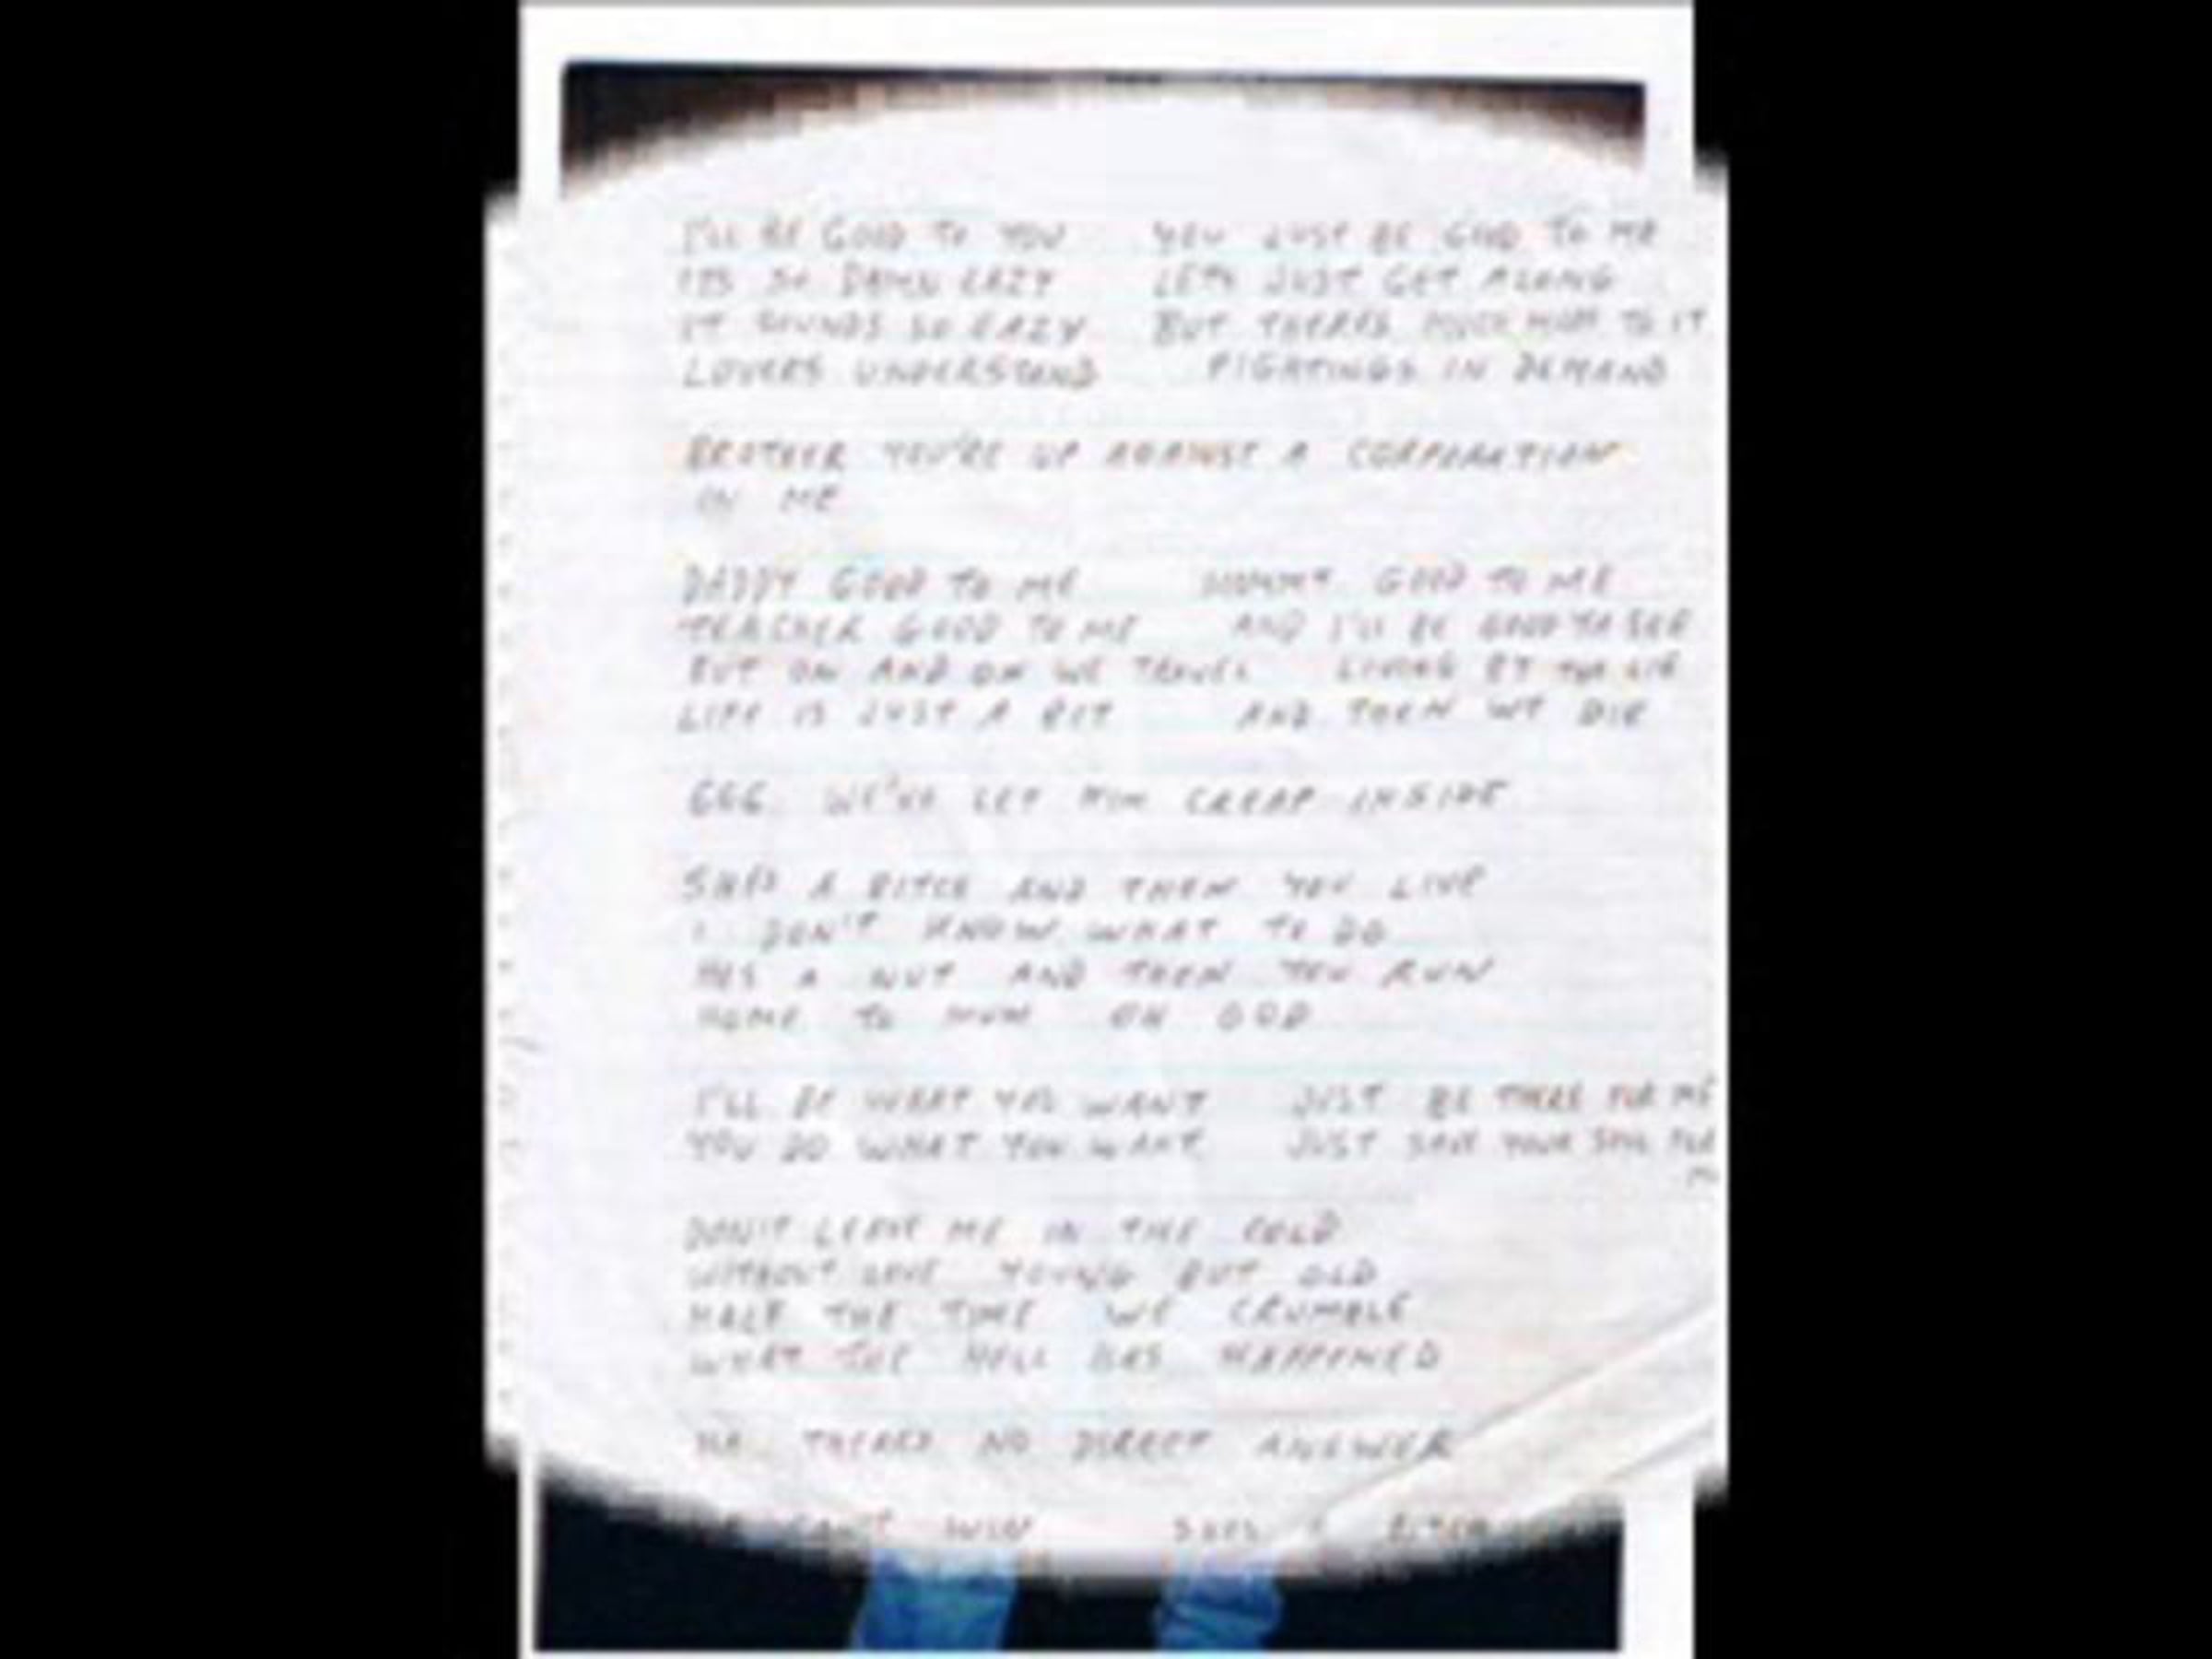 I'LL BE GOOD TO YOU YOU JUST BE GOOD TO ME
ITS SO DAMN EAZY LETS JUST GET ALONG
IT SOUNDS SO EAZY BUT THERES MUCH MORE TO IT
LOVERS UNDERSTAND FIGHTINGS IN DEMAND
BROTHER YOU'RE UP AGAINST A CORPORATION
IN ME
DADDY GOOD TO ME MOMMY GOOD TO ME
TEACHER GOOD TO ME AND I'LL BE GOOD TO
BUT ON AND ON WE TRAVEL LIVING BY THE LIE
LIFE IS JUST A BET AND THEN WE DIE
666 WE'VE LET HIM CREAP INSIDE
SHES A BITCH AND THEN YOU LIVE
I DON'T KNOW WHAT TO DO
HES A NUT AND THEN YOU RUN
HOME TO MUM OH GOD
I'LL BE WHAT YOU WANT JUST BE THERE FOR ME
YOU DO WHAT YOU WANT JUST SAVE YOUR SOUL FOR
DON'T LEAVE ME IN THE COLD
WITHOUT LOVE YOUNG BUT OLD
HALF THE TIME WE CRUMBLE
WHAT THE HELL HAS HAPPENED
THERES NO DIRECT ANSWER
CAN'T WIN SHES A BITCH